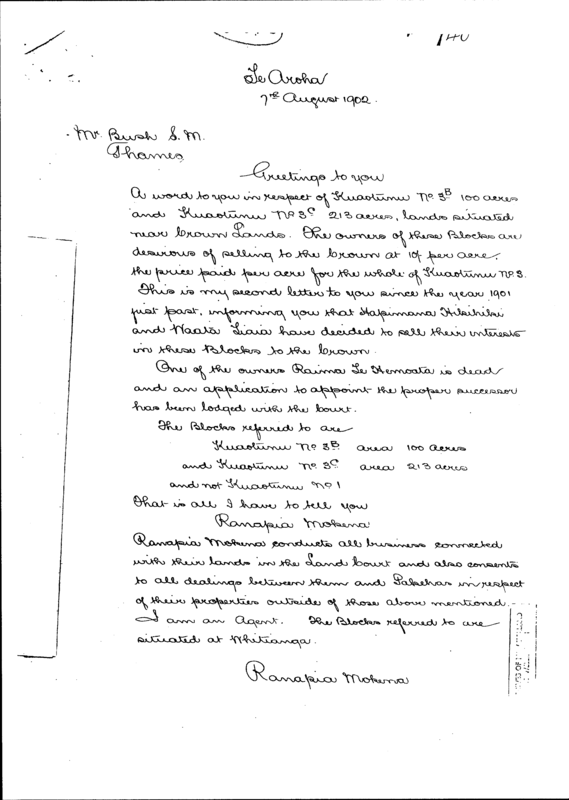 140
Te Aroha
7th August 1902.
Mr. Bush S. M.
Thames
Greetings to you
A word to you in respect of Kuaotunu No 3B 100 acres
and Kuaotunu No 3C 213 acres, lands situated
near Crown Lands. The owners of these Blocks are
desirous of selling to the Crown at 10/ per acre,
the price paid per acre for the whole of Kuaotunu No 3.
This is my second letter to you since the year 1901
just past, informing you that Hapimana
and Waata have decided to sell their interests
in these Blocks to the Crown.
One of the owners Raima Te Hemoata is dead
and an application to appoint the proper successor
has been lodged with the Court.
The Blocks referred to are
Kuaotunu No 3B area 100 acres
and Kuaotunu No 3C area 213 acres
and not Kuaotunu No 1
That is all I have to tell you
Ranapia Mokena
Ranapia Mokena conducts all business connected
with their lands in the Land Court and also consents
to all dealings between them and Pakehas in respect
of their properties outside of those above mentioned.
I am an Agent. The Blocks referred to are
situated at Whitianga.
Ranapia Mokena